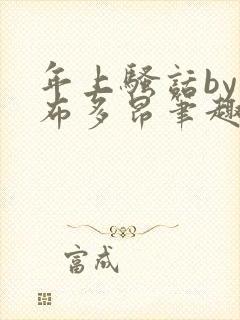 年上骚话by
布多昂笔趣
富成